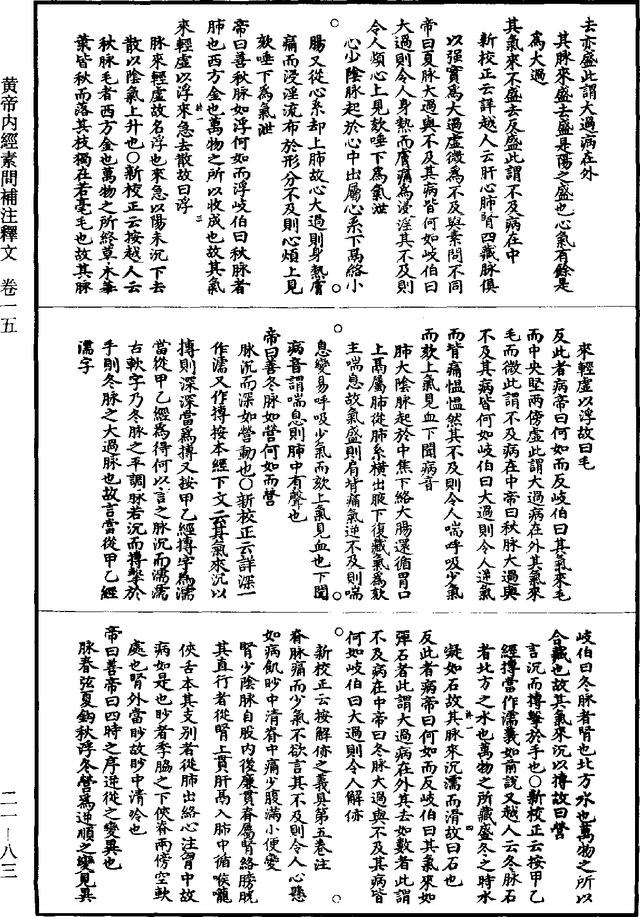 去亦盛此謂太過病在外
其脉來盛去盛是陽之盛也心氣有餘是
為大過
其氣來不盛去反盛此謂不及病在中
新校正云詳越人云肝心肺腎四藏脉俱
以强實為大過虚微為不及與素問不同
帝曰夏脉大過與不及其病皆何如岐伯曰
大過則令人身熱而膚痛為浸淫其不及則
令人煩心上見欬唾下為氣泄
心少隂脉起於心中出屬心系下鬲絡小
腸又從心系却上肺故心大過則身熱膚
痛而浸淫流布於形分不及則心煩上見
欬唾下為氣泄
帝曰善秋脉如浮何如而浮岐伯曰秋脉者
肺也西方金也萬物之所以收成也故其氣
來輕虚以浮來急去散故曰浮
脉來輕虚故名浮也來急以陽未沉下去
散以隂氣上升也○新校正云按越人云
秋脉毛者西方金也萬物之所終草木華
葉皆秋而落其枝獨在若毫毛也故其脉
來輕虚以浮故曰毛
反此者病帝曰何如而反岐伯曰其氣來毛
而中央堅兩傍虚此謂大過病在外其氣來
毛而微此謂不及病在中帝曰秋脉大過與
不及其病皆何如岐伯曰大過則令人逆氣
而背痛慍慍然其不及則令人喘呼吸少氣
而欬上氣見血下聞病音
肺大隂脉起於中焦下絡大腸還循胃口
上鬲屬肺從肺系横出腋下復藏氣為欬
主喘息故氣盛則肩背痛氣逆不及則喘
息變易呼吸少氣而欬上氣見血也下聞
病音謂喘息則肺中有聲也
帝曰善冬脉如營何如而營
脉沉而深如營動也○新校正云詳深一
作濡又作搏按本經下文云其氣來沉以
搏則深深當為搏又按甲乙經搏字為濡
當從甲乙經為得何以言之脉沉而濡濡
古軟字乃冬脉之平調脉若沉而搏擊於
手則冬脉之大過脉也故言當從甲乙經
濡字
岐伯曰冬脉者腎也北方水也萬物之所以
合藏也故其氣來沉以搏故曰營
言沉而搏擊於手也○新校正云按甲乙
經搏當作濡義如前說又越人云冬脉石
者北方之水也萬物之所藏盛冬之時水
凝如石故其脉來沉濡而滑故曰石也
反此者病帝曰何如而反岐伯曰其氣來如
彈石者此謂大過病在外其去如數者此謂
不及病在中帝曰冬脉大過與不及其病皆
何如岐伯曰大過則令人解㑊
新校正云按解㑊之義具第五卷注
脊脉痛而少氣不欲言其不及則令人心懸
如病飢䏚中清脊中痛少腹滿小便變
腎少隂脉自股内後廉貫脊屬腎絡膀胱
其直行者從腎上貫肝鬲入肺中循喉嚨
俠舌本其支别者從肺出絡心注胷中故
病如是也䏚者季脇之下俠脊兩傍空軟
處也腎外當䏚故䏚中清冷也
帝曰善帝曰四時之序逆從之變異也
脉春弦夏鈎秋浮冬營為逆順之變見異
黄帝内經素問補注釋文 卷一五
二一—八三